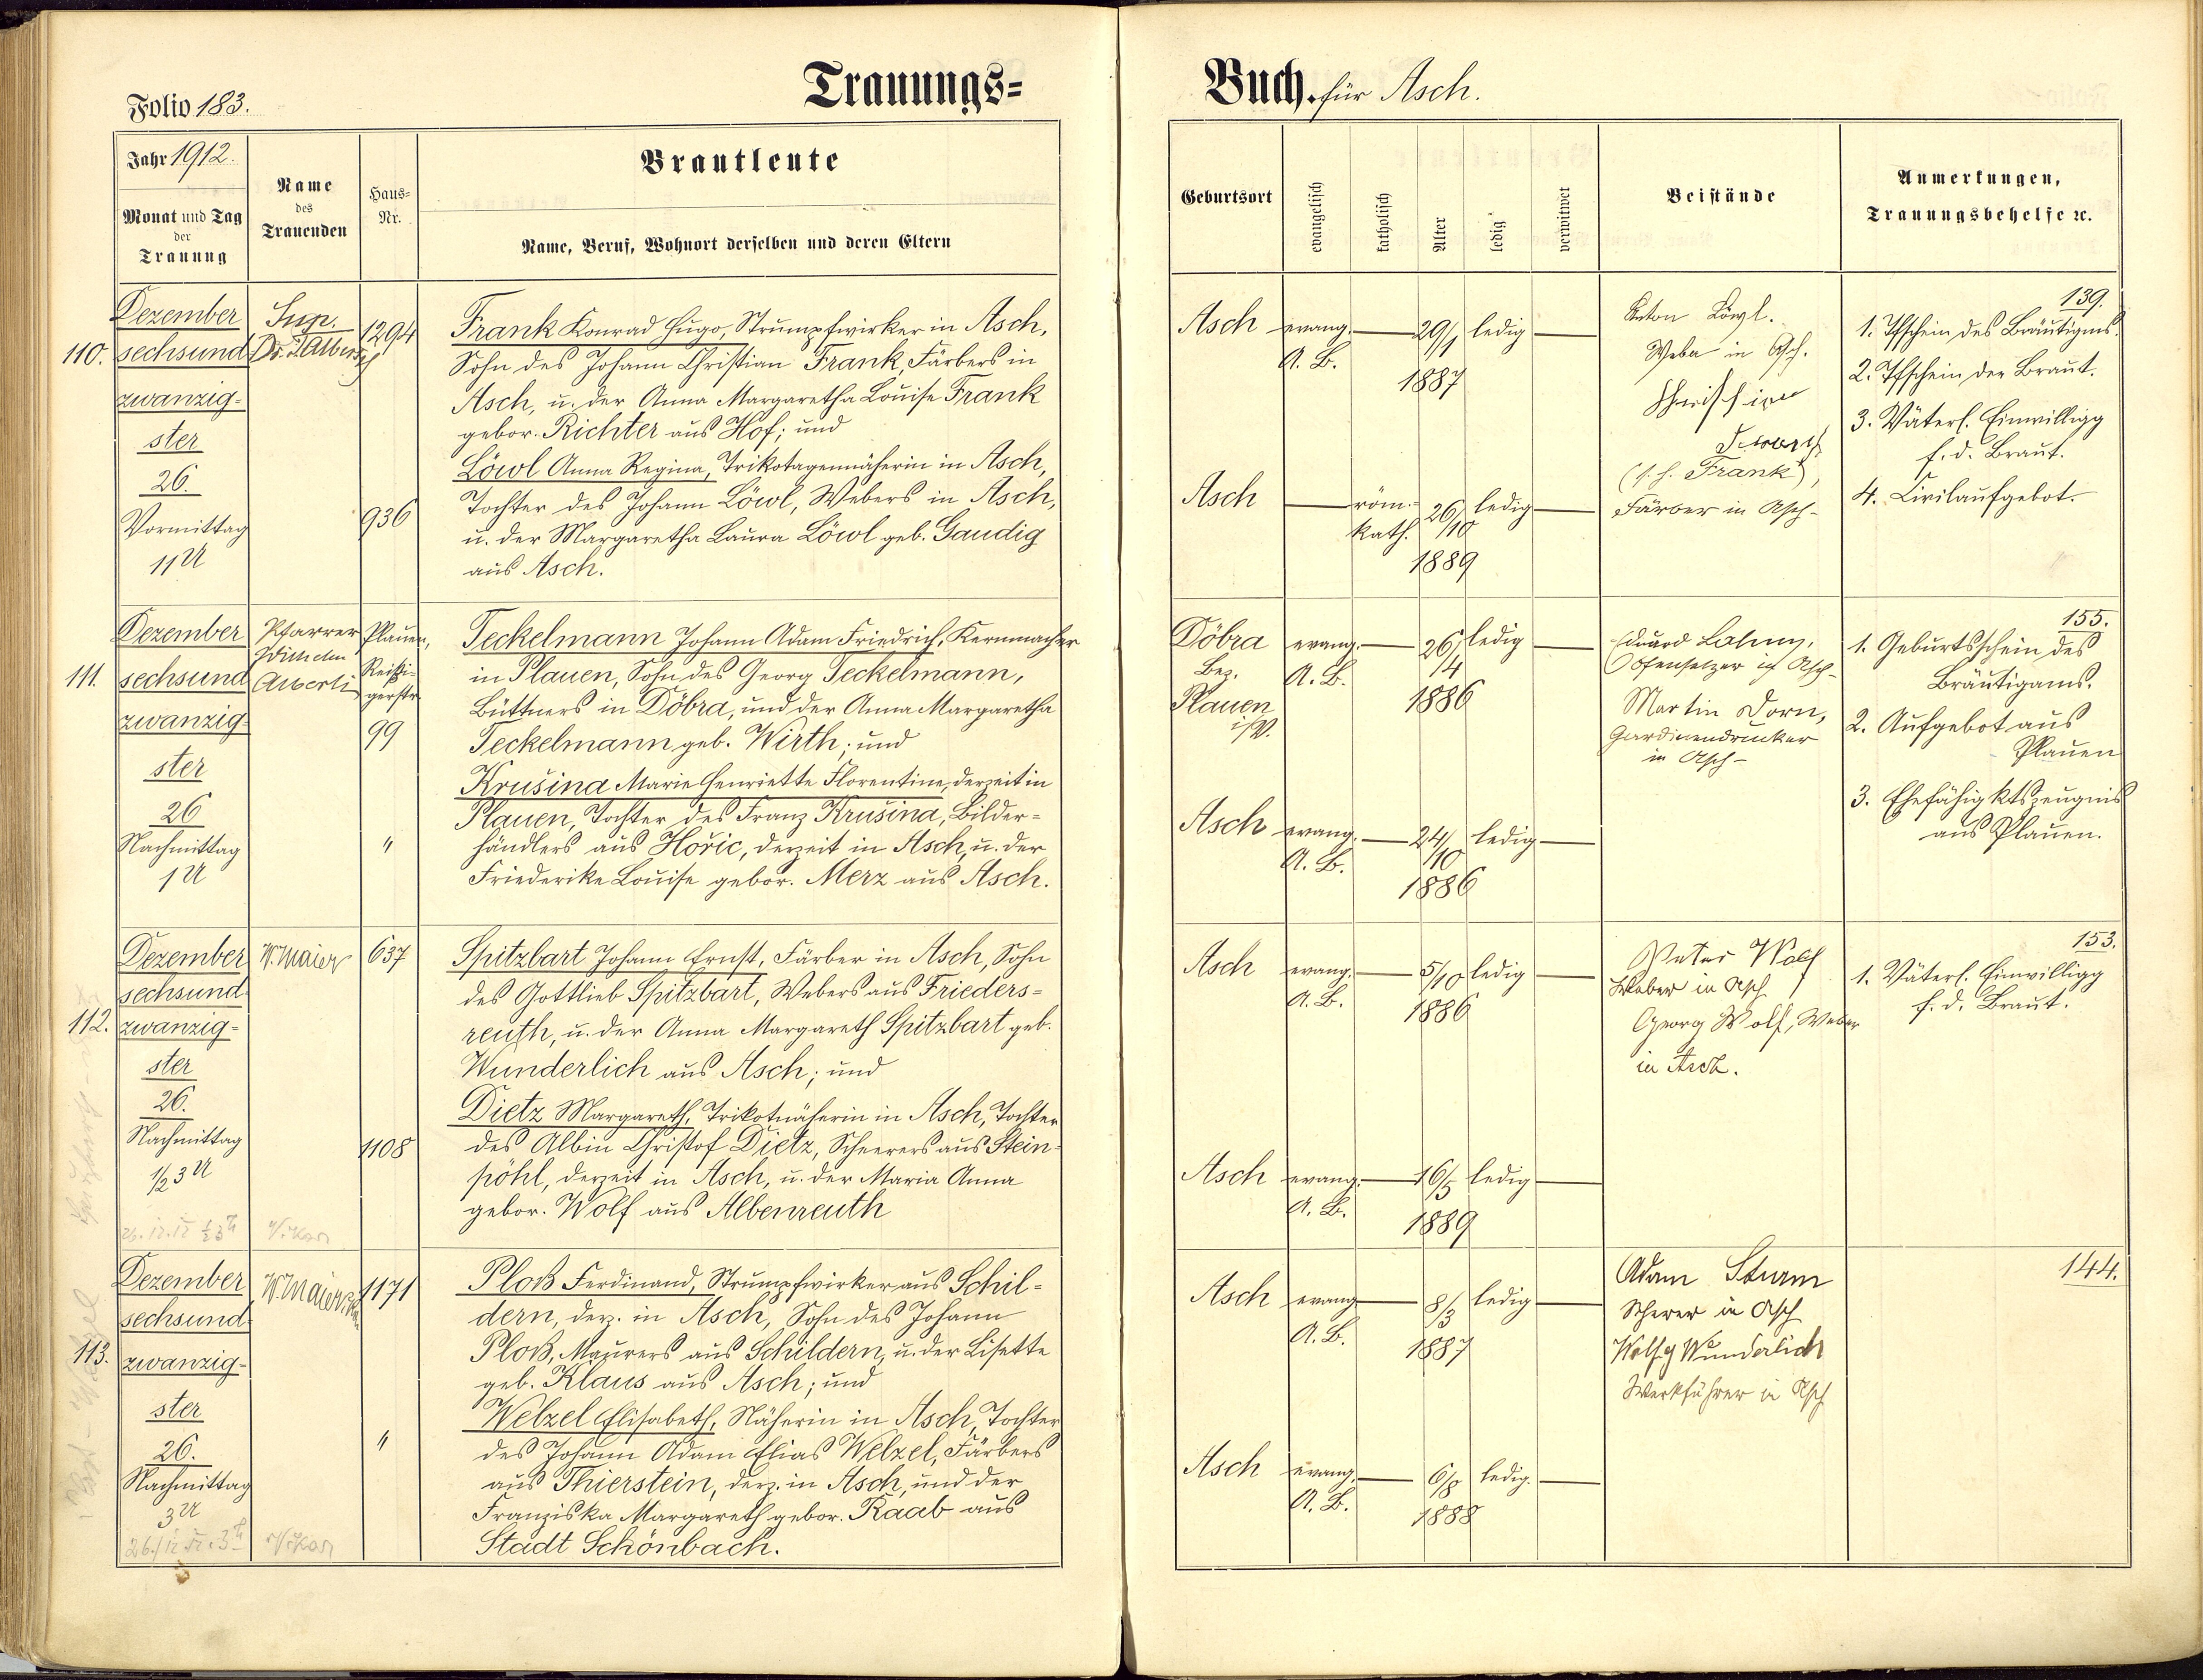 Trauungs=
Folio 183.
Jahr 1912.
Monat und Tag
der
Trauung
Name
des
Trauenden
Haus=
Nr.
Brautleute
Name, Beruf, Wohnort derselben und deren Eltern
110.
Dezember
sechsund
zwanzig=
ster
26.
Vormittag
11 U
Sup.
Dr. T. Alberti
1294
936
Frank Konrad Hugo, Strumpfwirker in Asch,
Sohn des Johann Christian Frank, Färbers in
Asch, u. der Anna Margaretha Louise Frank
gebor. Richter aus Hof; und
Löwl Anna Regina, Trikotagennäherin in Asch,
Tochter des Johann Löwl, Webers in Asch,
u. der Margaretha Laura Löwl geb. Gaudig
aus Asch.
111.
Dezember
sechsund
zwanzig=
ster
26
Nachmittag
1 U
Pfarrer
Wilhelm
Alberti
Plauen,
Reißi-
gerstr.
99
"
Teckelmann Johann Adam Friedrich, Kernmacher
in Plauen, Sohn des Georg Teckelmann,
Büttners in Döbra, und der Anna Margaretha
Teckelmann geb. Wirth; und
Krušina Marie Henriette Florentine, derzeit in
Plauen, Tochter des Franz Krušina, Bilder=
händlers aus Hořic, derzeit in Asch, u. der
Friederike Louise gebor. Merz aus Asch.
112.
Dezember
sechsund
zwanzig=
ster
26.
Nachmittag
1/2 3 U
W. Maier
637
1108
Spitzbart Johann Ernst, Färber in Asch, Sohn
des Gottlieb Spitzbart, Webers aus Frieders=
reuth, u. der Anna Margareth Spitzbart geb.
Wunderlich aus Asch; und
Dietz Margareth, Trikotnäherin in Asch, Tochter
des Albin Christof Dietz, Scheerers aus Stein-
pöhl, derzeit in Asch, u. der Maria Anna
gebor. Wolf aus Albenreuth
113.
Dezember
sechsund
zwanzig=
ster
26.
Nachmittag
3 U
W. Maier
1171
"
Ploß Ferdinand, Strumpfwirker aus Schil=
dern, derz. in Asch, Sohn des Johann
Ploß, Maurers aus Schildern, u. der Lisette
geb. Klaus aus Asch; und
Welzel Elisabeth, Näherin in Asch, Tochter
des Johann Adam Elias Welzel, Färbers
aus Thierstein, derz. in Asch, und der
Franziska Margareth gebor. Raab aus
Stadt Schönbach.
Buch für Asch.
Geburtsort
evangelisch
katholisch
Alter
ledig
verwitwet
Beistände
Anmerkungen,
Trauungsbehelfe ꝛc.
Asch evang. 29/1 ledig
A. B.
1887
Asch röm.= 26/10 ledig
kath.
1889
Anton Löwl.
Weber in Asch.
Christian
(s. h. Frank),
Färber in Asch.
139.
1. Tfschein des Bräutigms.
2. Tfschein der Braut.
3. Väterl. Einwilligg
f. d. Braut.
4. Civilaufgebot.
Döbra evang. 26/4 ledig
Bez. A. B.
Plauen 1886
i/V.
Asch evang. 24/10 ledig
A. B.
1886
Eduard
Ofensetzer in Asch
Martin Dorn,
Gardinendrucker
in Asch
155.
1. Geburtsschein des
Bräutigams.
2. Aufgebot aus
Plauen
3. Ehefähigktszeugnis
aus Plauen.
Asch evang. 5/10 ledig
A. B.
1886
Asch evang. 16/5 ledig
A. B.
1889
Peter Wolf
Weber in Asch
Georg Wolf, Weber
in Asch.
153.
1. Väterl. Einwilligg
f. d. Braut.
Asch evang. 8/3 ledig
A. B.
1887
Asch evang. 6/8 ledig.
A. B.
1888
Adam Sturm
Scherer in Asch
Wolfg Wunderlich
Werkführer in Asch
144.